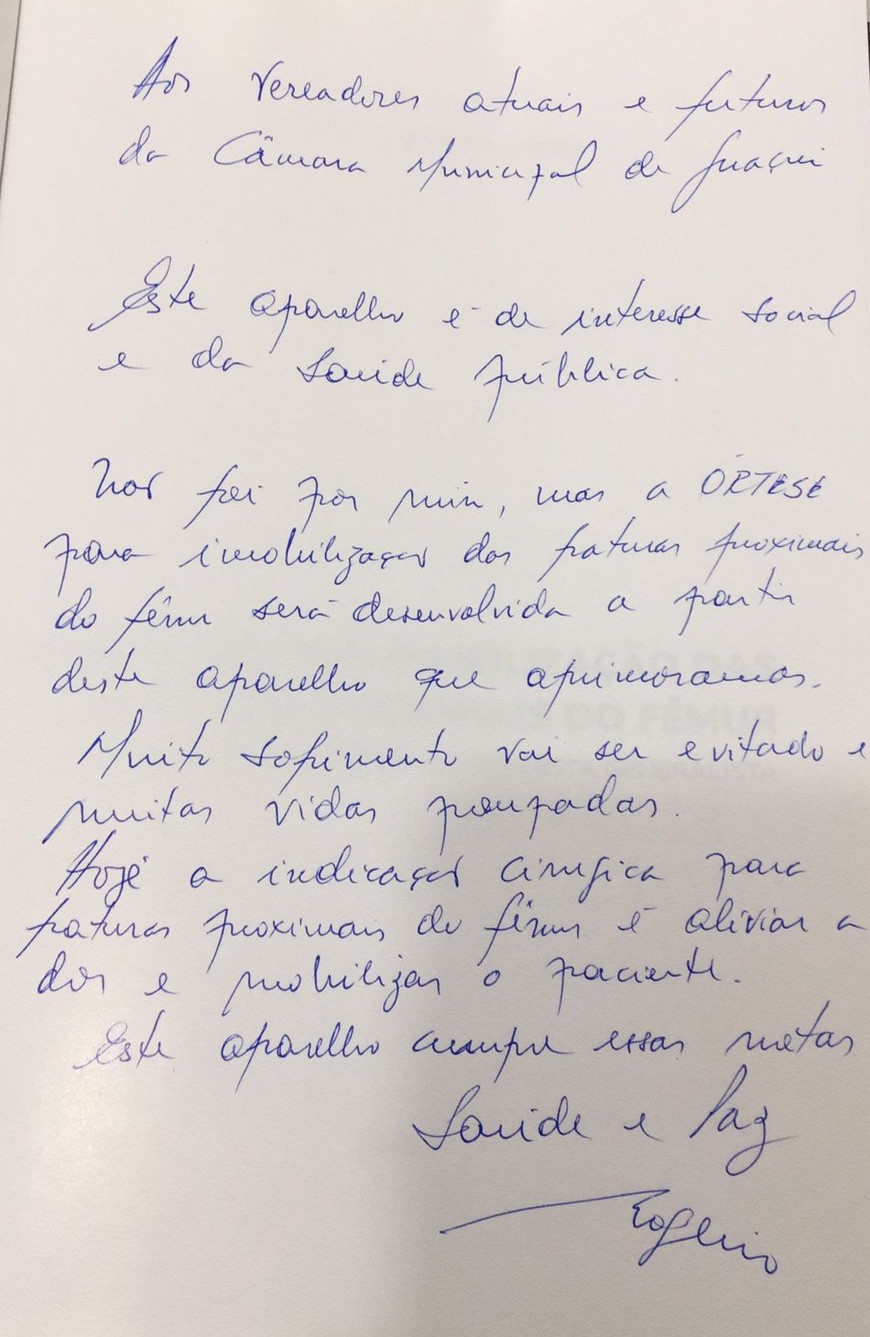 Aos Vereadores atuais e futuros
da Câmara Municipal de Guaçui
Este aparelho é de interesse social
e da Saúde pública.
Não foi por mim, mas a ÓRTESE
para imobilização das fraturas proximais
do fêmur será desenvolvida a partir
deste aparelho que aprimoramos.
Muito sofrimento vai ser evitado e
muitas vidas poupadas.
Hoje a indicação cirúrgica para
fraturas proximais do fêmur é aliviar a
dor e mobilizar o paciente.
Este aparelho cumpre essas metas
Saúde e Paz
Rogerio